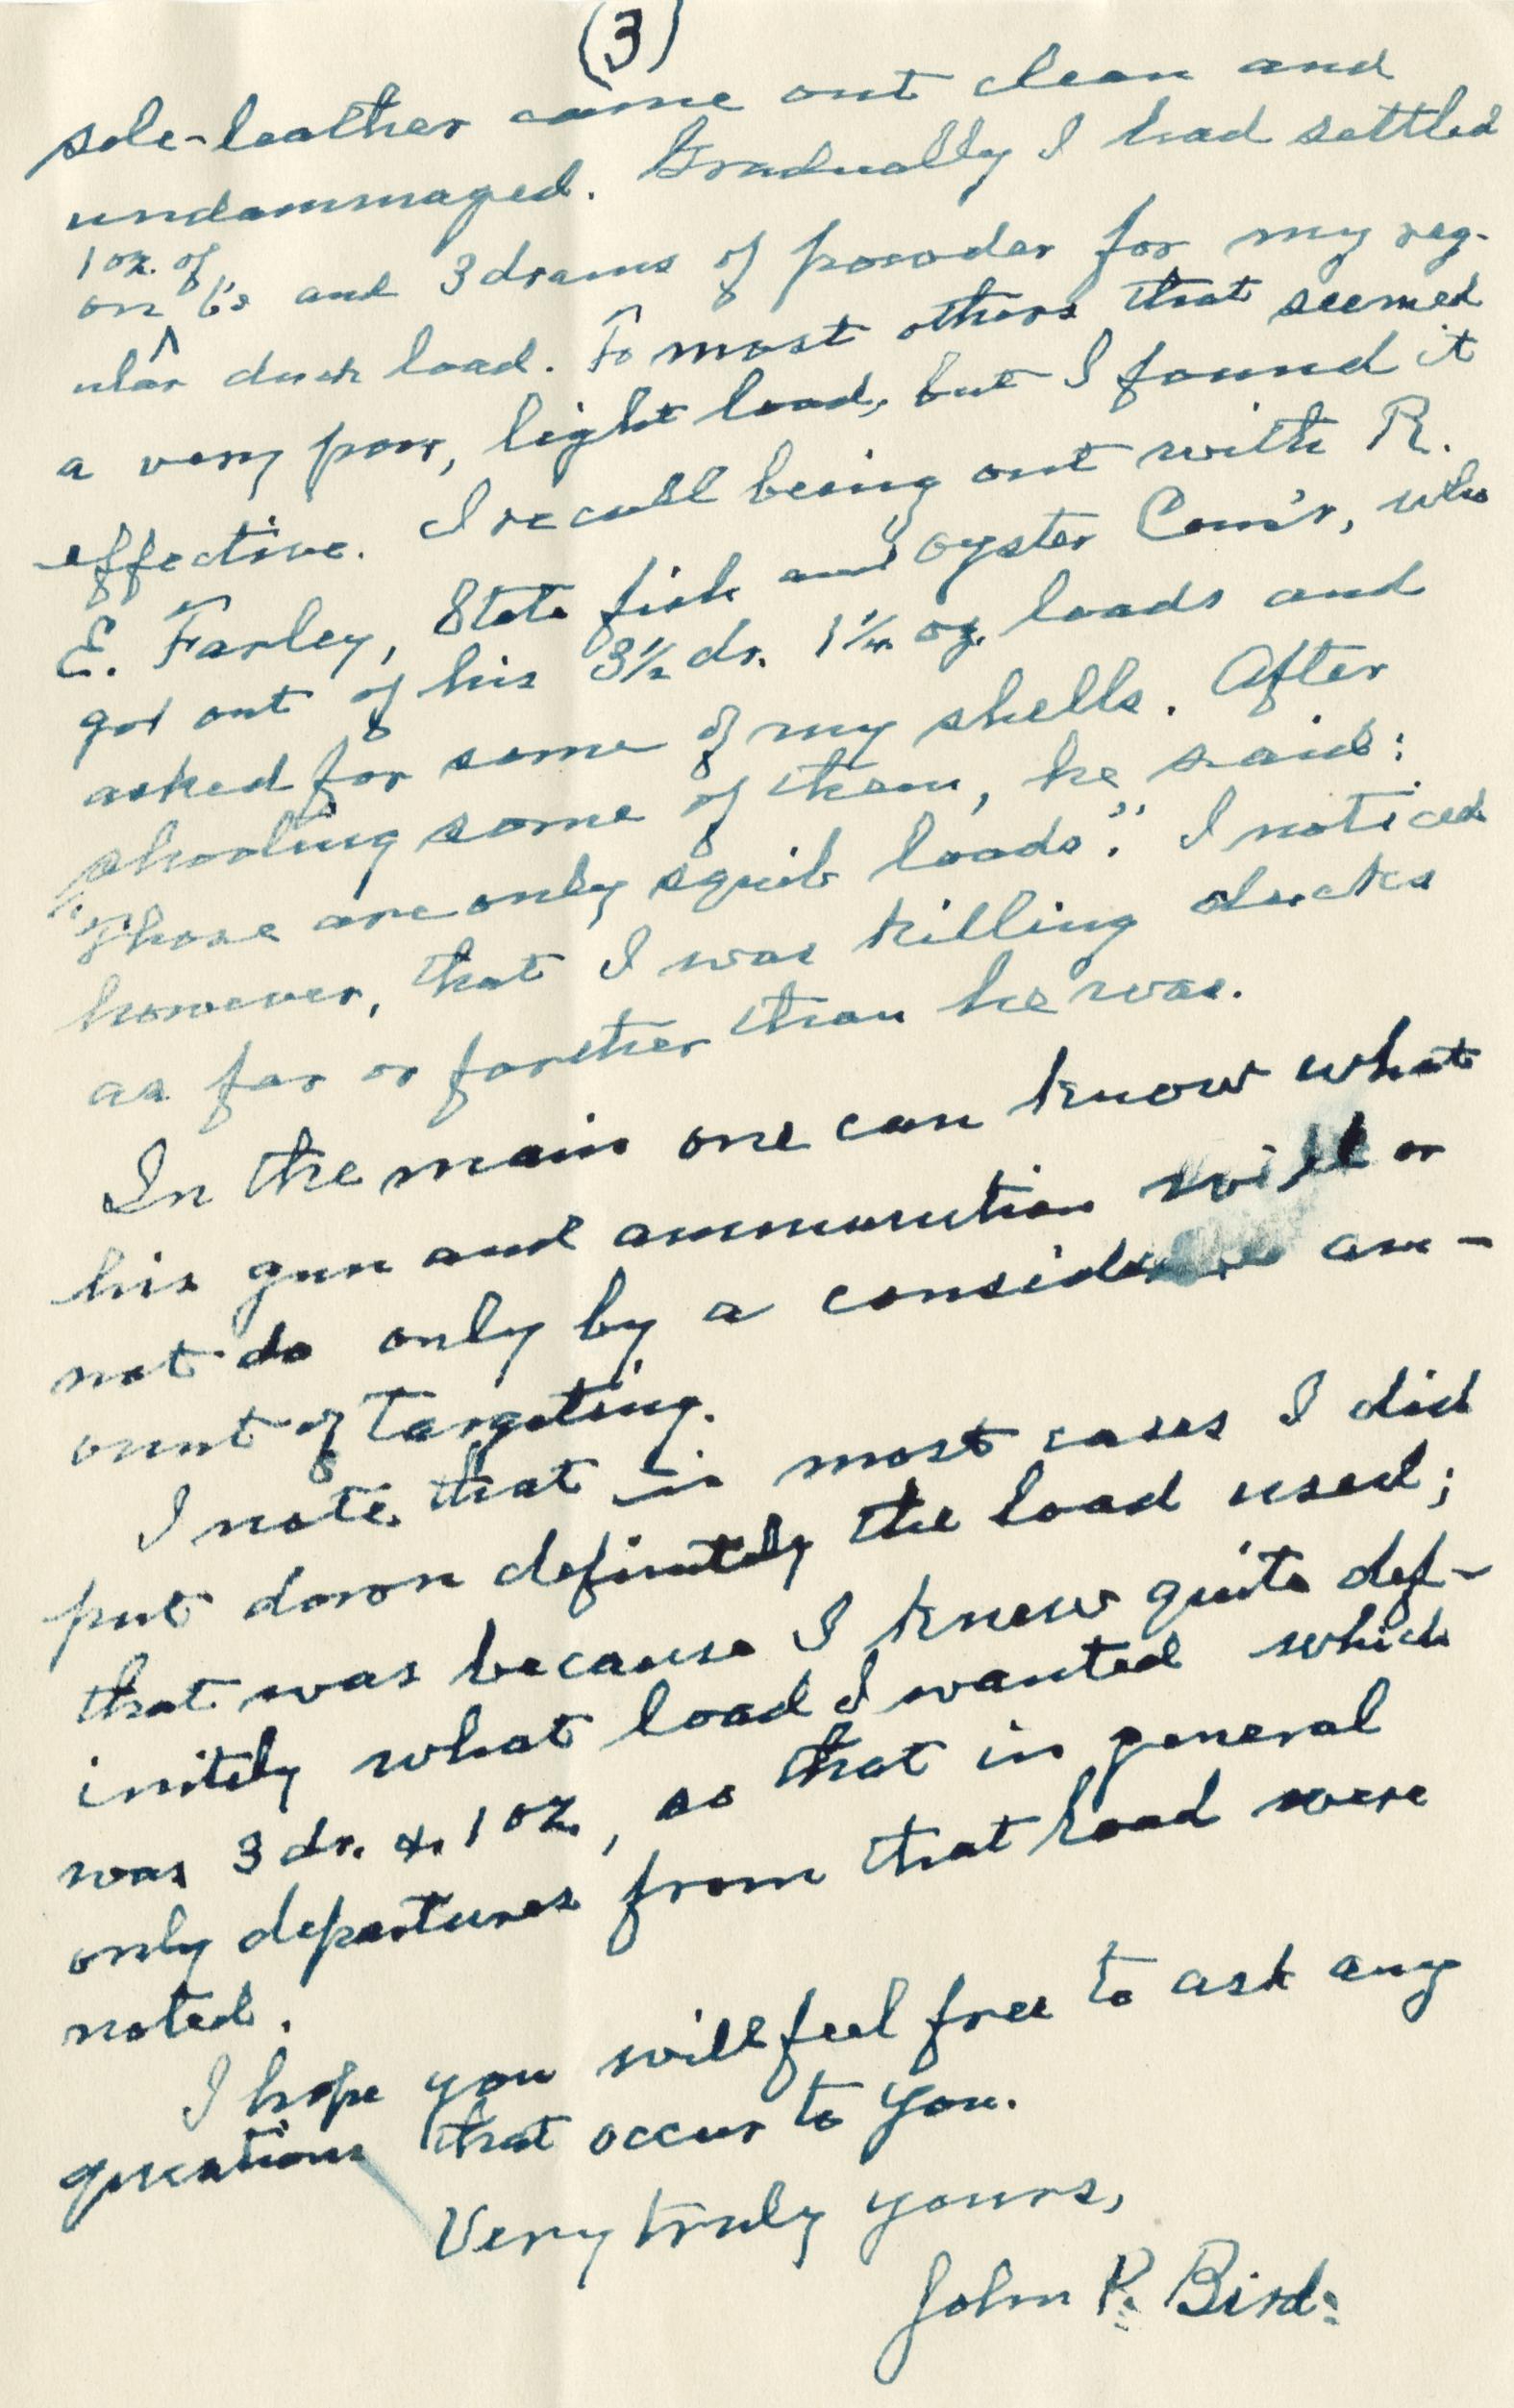 (3)
sole-leather came out clean and
undammaged. Gradually I had settled
1 oz. of
on ^ 6's and 3 drams of powder for my reg-
ular duck load. To most others that seemed
a very poor, light load, but I found it
effective. I recall being out with R.
E. Farley, State fish and oyster Com'r, who
got out of his 3½ dr. 1¼ oz. loads and
asked for some of my shells. After
shooting some of them, he said:
"Those are only squib loads". I noticed
however, that I was killing ducks
as far or farther than he was.
In the main one can know what
his gun and ammunition will or
not do only by a am-
ount of targeting.
I note that in most cases I did
put down definitely the load used;
that was because I knew quite def-
initely what load I wanted which
was 3 dr. & 1 oz., so that in general
only departures from that load were
noted.
I hope you will feel free to ask any
questions that occur to you.
Very truly yours,
John P. Bird.